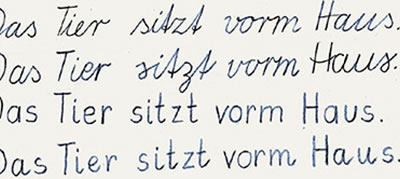 Das Tier sitzt vorm Haus.
Das Tier sitzt vorm Haus.
Das Tier sitzt vorm Haus.
Das Tier sitzt vorm Haus.